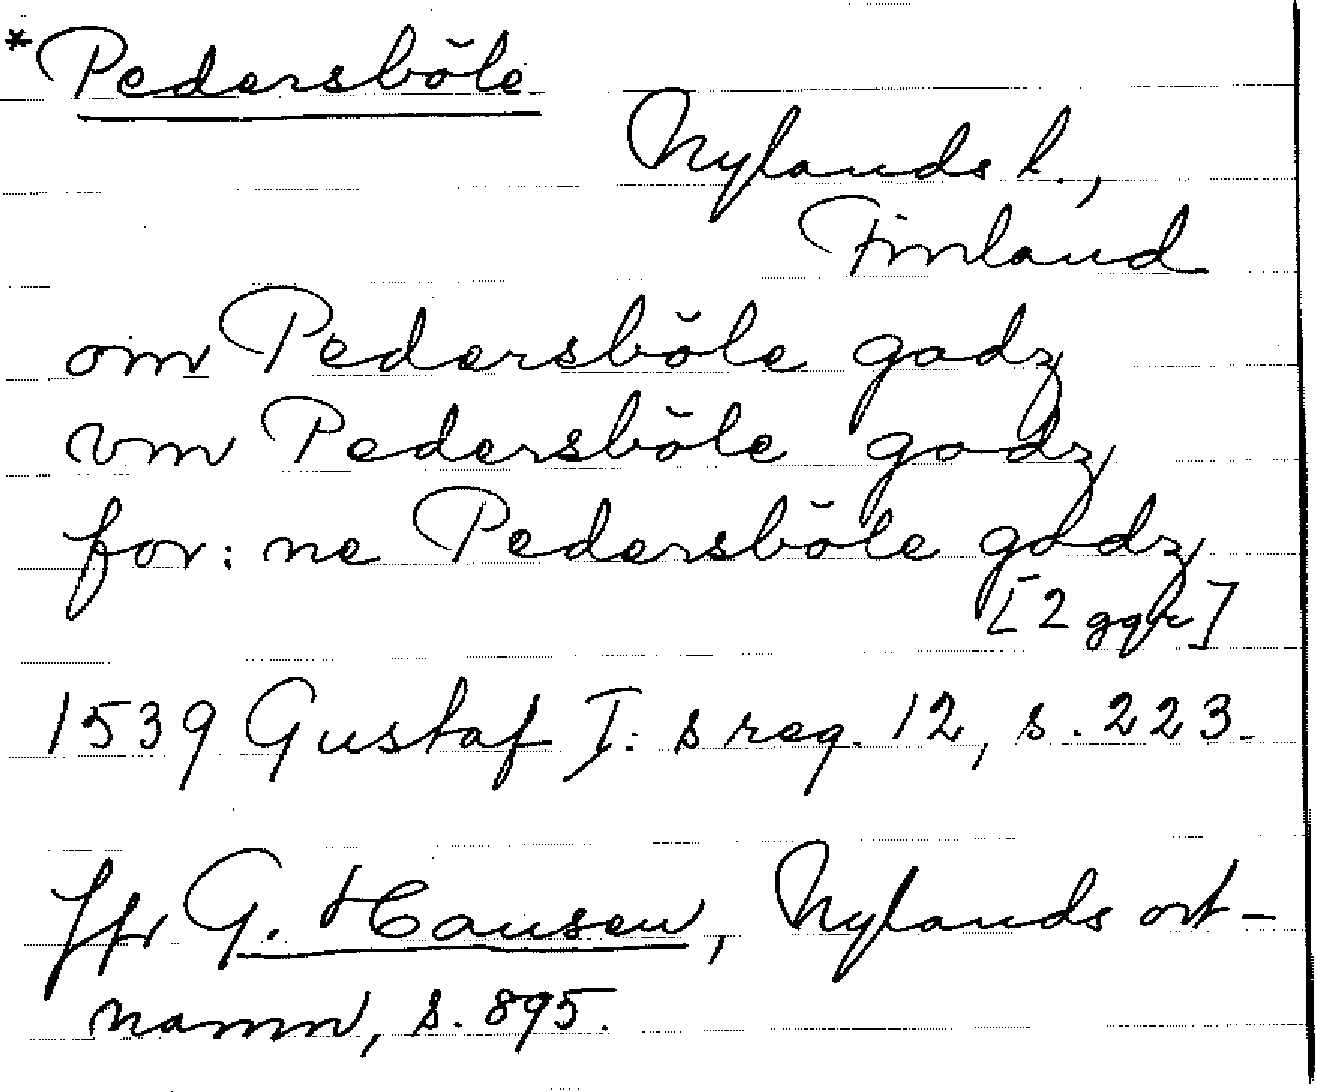 *Pedersböle
Nylands l.,
Finland
om Pedersböle godz
vm Pedersböle godz
for: ne Pedersböle godz
[2 ggr]
1539 Gustaf I: s reg. 12, s. 223.
Jfr G. Hausen, Nylands ort-
namn, s. 895.